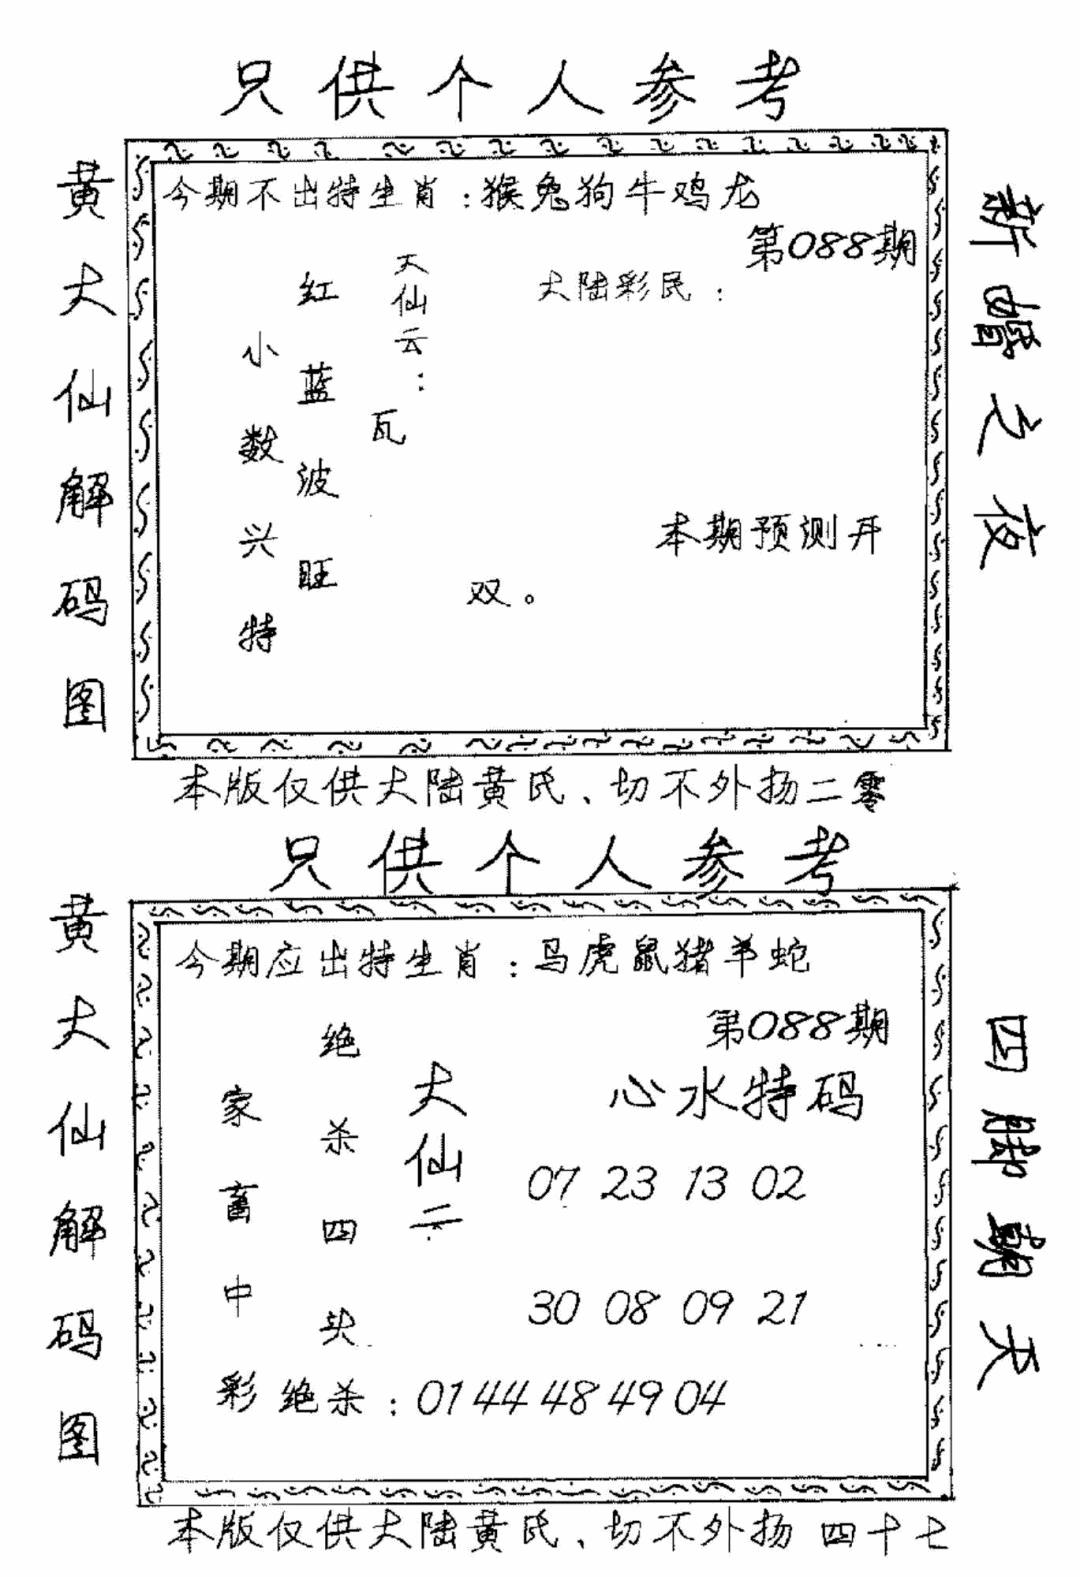 只供个人参考
黄大仙解码图
今期不出特生肖:猴兔狗牛鸡龙
第088期
大陆彩民:
天仙云:
瓦
红蓝波旺
小数兴特
本期预测开
双。
新婚之夜
本版仅供大陆黄氏、切不外扬二零
只供个人参考
黄大仙解码图
今期应出特生肖:马虎鼠猪羊蛇
第088期
心水特码
大仙云
绝杀四头
家畜中彩
07 23 13 02
30 08 09 21
绝杀:01 44 48 49 04
四脚朝天
本版仅供大陆黄氏、切不外扬 四十七